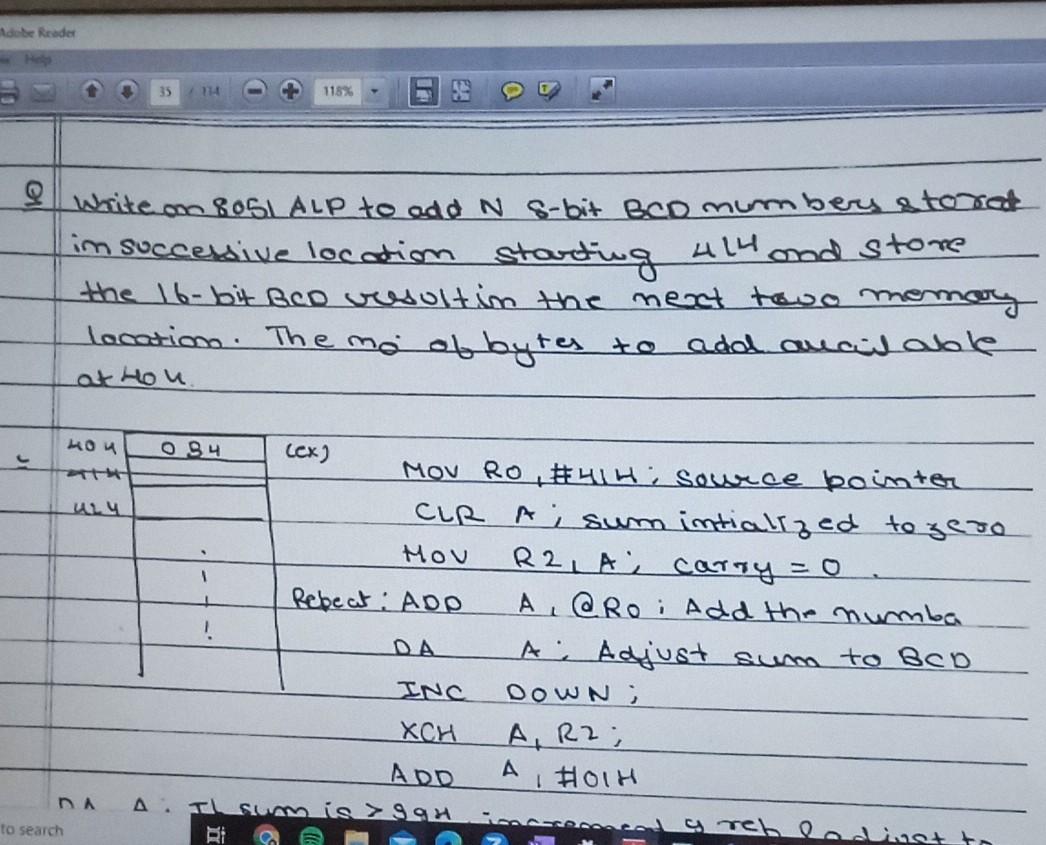 Adobe Reader
Help
35 / 114 118%
Q Write an 8051 ALP to add N 8-bit BCD numbers stored
in successive location starting 41H and store
the 16-bit BCD result in the next two memory
location. The no of bytes to add available
at 40H.
40H 0 9H (ex)
41H MOV R0, #41H; source pointer
42H CLR A; sum intialized to zero
MOV R2, A; carry = 0.
Repeat: ADD A, @R0; Add the numba
DA A; Adjust sum to BCD
INC DOWN;
XCH A, R2;
ADD A, #01H
DA A; If sum is > 99H, increment
to search